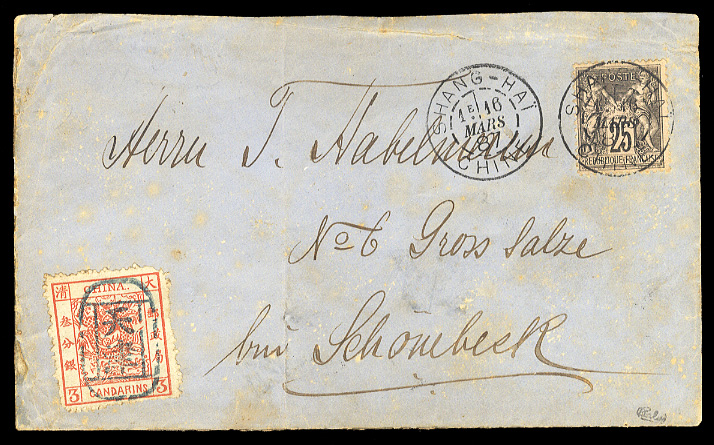 SHANG-HAÏ
1E 16
MARS
CHINE
POSTE
25
REPUBLIQUE FRANÇAISE
Herrn T. Habelmann
No 6 Gross Salze
bei Schönebeck
清 CHINA. 大
叁分銀
郵政局
天
3 CANDARINS 3